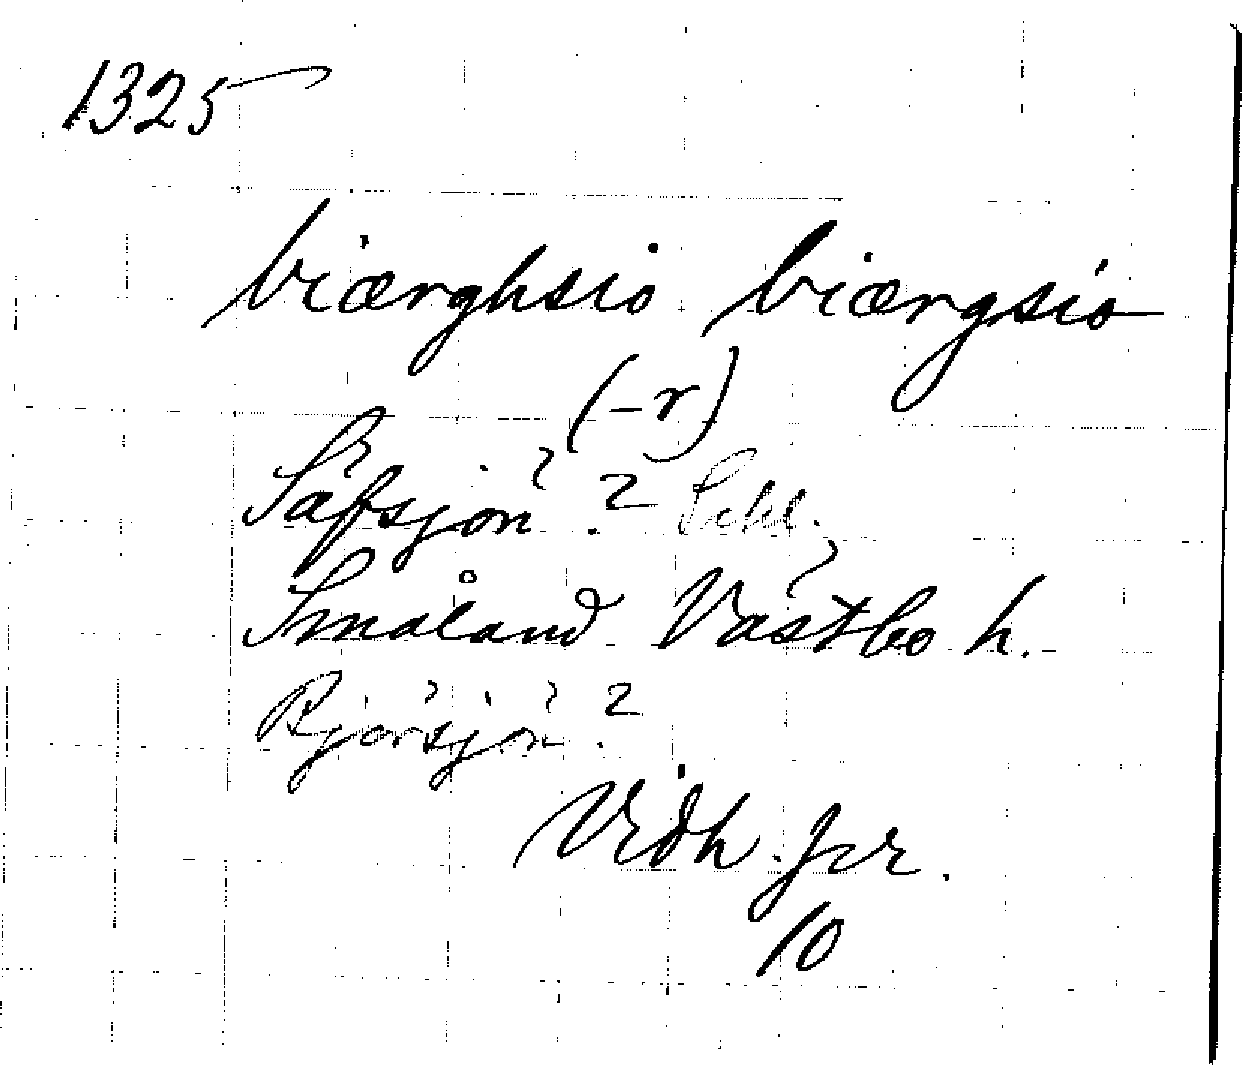 1325
biærghsio biærgsio
(-r)
Säfsjön? Schl.
Småland Västbo h.
Bjórsjön?
Vidh. fsr.
10